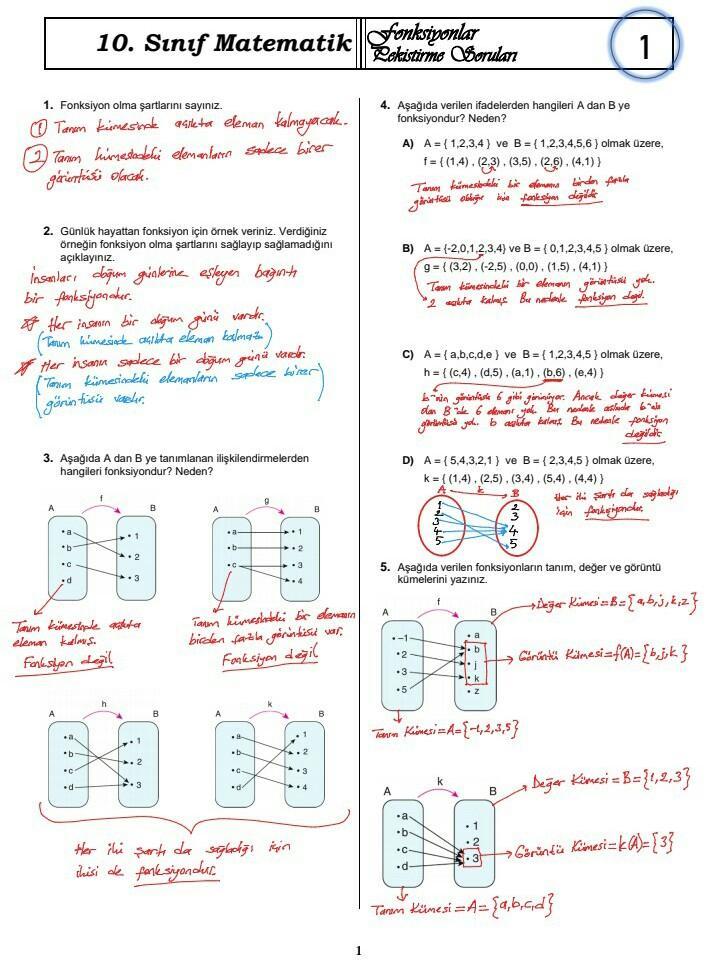 10. Sınıf Matematik
Fonksiyonlar
Pekiştirme Soruları
1
1. Fonksiyon olma şartlarını sayınız.
① Tanım kümesinde açıkta eleman kalmayacak.
② Tanım kümesindeki elemanların sadece birer
görüntüsü olacak.
2. Günlük hayattan fonksiyon için örnek veriniz. Verdiğiniz
örneğin fonksiyon olma şartlarını sağlayıp sağlamadığını
açıklayınız.
İnsanları doğum günlerine eşleyen bağıntı
bir fonksiyondur.
Her insanın bir doğum günü vardır.
(Tanım kümesinde açıkta eleman kalmaz)
Her insanın sadece bir doğum günü vardır.
(Tanım kümesindeki elemanların sadece birer
görüntüsü vardır.
3. Aşağıda A dan B ye tanımlanan ilişkilendirmelerden
hangileri fonksiyondur? Neden?
f
A B
a
b
c
d
1
2
3
Tanım kümesinde açıkta
eleman kalmış.
Fonksiyon değil
g
A B
a
b
c
1
2
3
4
Tanım kümesindeki bir elemanın
birden fazla görüntüsü var.
Fonksiyon değil
h
A B
a
b
c
d
1
2
3
k
A B
a
b
c
d
1
2
3
4
Her iki şartı da sağladığı için
ikisi de fonksiyondur.
4. Aşağıda verilen ifadelerden hangileri A dan B ye
fonksiyondur? Neden?
A) A = { 1,2,3,4 } ve B = { 1,2,3,4,5,6 } olmak üzere,
f = { (1,4) , (2,3) , (3,5) , (2,6) , (4,1) }
Tanım kümesindeki bir elemanın birden fazla
görüntüsü olduğu için fonksiyon değildir
B) A = {-2,0,1,2,3,4} ve B = { 0,1,2,3,4,5 } olmak üzere,
g = { (3,2) , (-2,5) , (0,0) , (1,5) , (4,1) }
Tanım kümesindeki bir elemanın görüntüsü yok.
2 açıkta kalmış. Bu nedenle fonksiyon değil.
C) A = { a,b,c,d,e } ve B = { 1,2,3,4,5 } olmak üzere,
h = { (c,4) , (d,5) , (a,1) , (b,6) , (e,4) }
b'nin görüntüsü 6 gibi görünüyor. Ancak değer kümesi
olan B'de 6 elemanı yok. Bu nedenle aslında b'nin
görüntüsü yok. b açıkta kalmış. Bu nedenle fonksiyon
değildir.
D) A = { 5,4,3,2,1 } ve B = { 2,3,4,5 } olmak üzere,
k = { (1,4) , (2,5) , (3,4) , (5,4) , (4,4) }
A k B
1
2
3
4
5
2
3
4
5
Her iki şartı da sağladığı
için fonksiyondur.
5. Aşağıda verilen fonksiyonların tanım, değer ve görüntü
kümelerini yazınız.
f
A B
−1
2
3
5
a
b
j
k
z
Değer Kümesi=B={a,b,j,k,z}
Görüntü Kümesi=f(A)={b,j,k}
Tanım Kümesi=A={-1,2,3,5}
k
A B
a
b
c
d
1
2
3
Değer Kümesi=B={1,2,3}
Görüntü Kümesi=k(A)={3}
Tanım Kümesi=A={a,b,c,d}
1